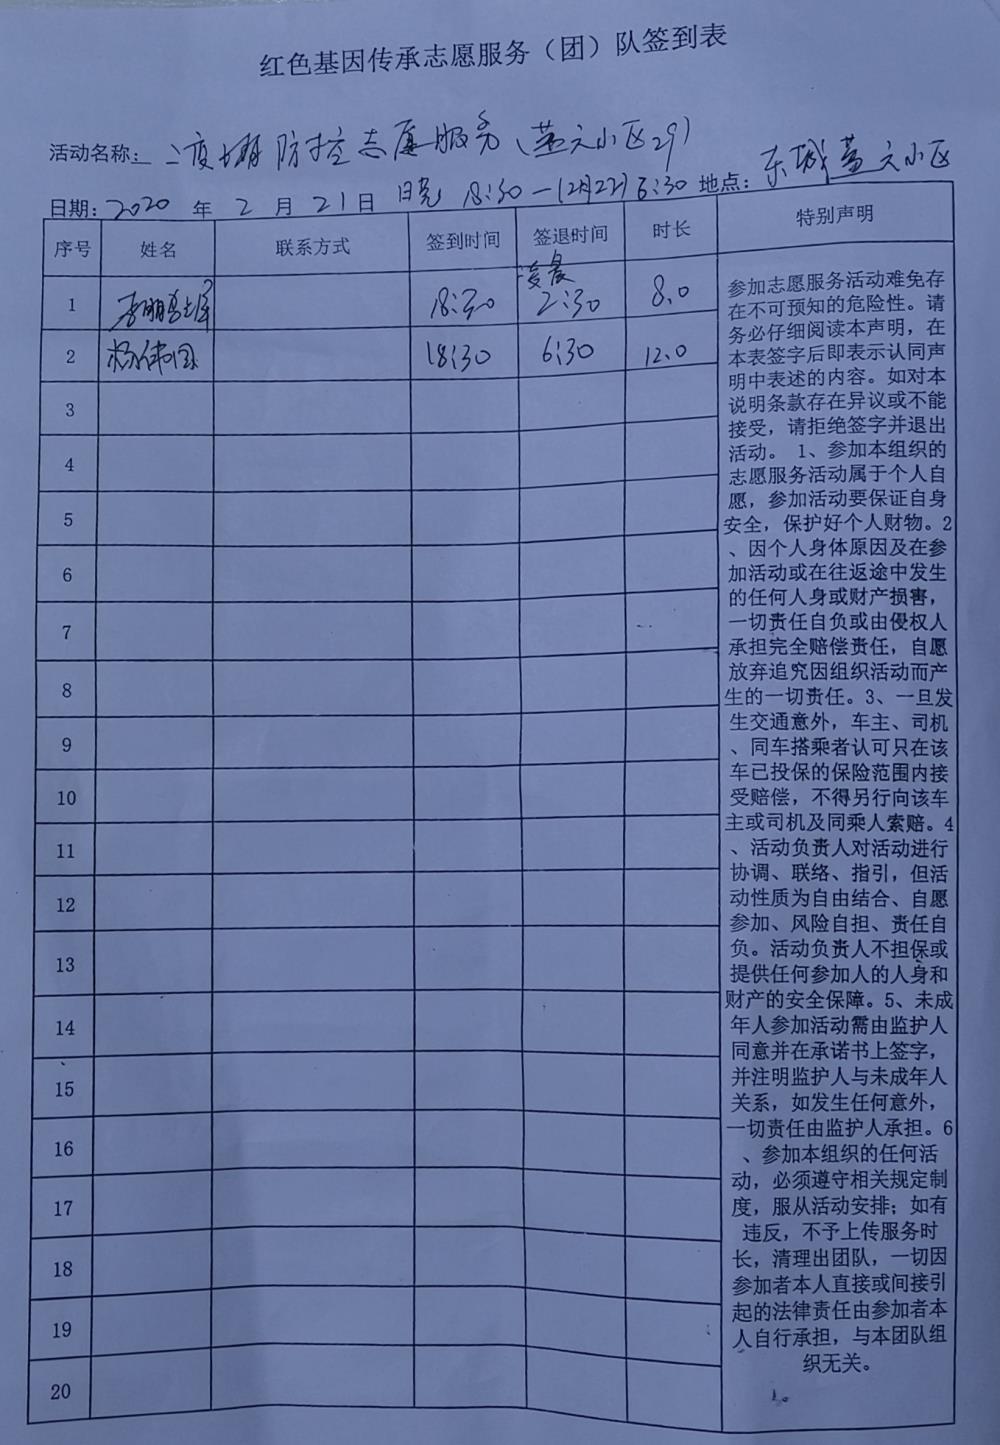 红色基因传承志愿服务（团）队签到表
活动名称： 防控志愿服务（蓝天小区29）
日期：2020 年 2 月 21 日 18:30—(2月22) 6:30 地点：东城蓝天小区
序号 姓名 联系方式 签到时间 签退时间 时长 特别声明
凌晨
1 18:30 2:30 8.0
2 杨伟国 18:30 6:30 12.0
3
4
5
6
7
8
9
10
11
12
13
14
15
16
17
18
19
20
参加志愿服务活动难免存
在不可预知的危险性。请
务必仔细阅读本声明，在
本表签字后即表示认同声
明中表述的内容。如对本
说明条款存在异议或不能
接受，请拒绝签字并退出
活动。 1、参加本组织的
志愿服务活动属于个人自
愿，参加活动要保证自身
安全，保护好个人财物。2
、因个人身体原因及在参
加活动或在往返途中发生
的任何人身或财产损害，
一切责任自负或由侵权人
承担完全赔偿责任，自愿
放弃追究因组织活动而产
生的一切责任。3、一旦发
生交通意外，车主、司机
、同车搭乘者认可只在该
车已投保的保险范围内接
受赔偿，不得另行向该车
主或司机及同乘人索赔。4
、活动负责人对活动进行
协调、联络、指引，但活
动性质为自由结合、自愿
参加、风险自担、责任自
负。活动负责人不担保或
提供任何参加人的人身和
财产的安全保障。5、未成
年人参加活动需由监护人
同意并在承诺书上签字，
并注明监护人与未成年人
关系，如发生任何意外，
一切责任由监护人承担。6
、参加本组织的任何活
动，必须遵守相关规定制
度，服从活动安排；如有
违反，不予上传服务时
长，清理出团队，一切因
参加者本人直接或间接引
起的法律责任由参加者本
人自行承担，与本团队组
织无关。